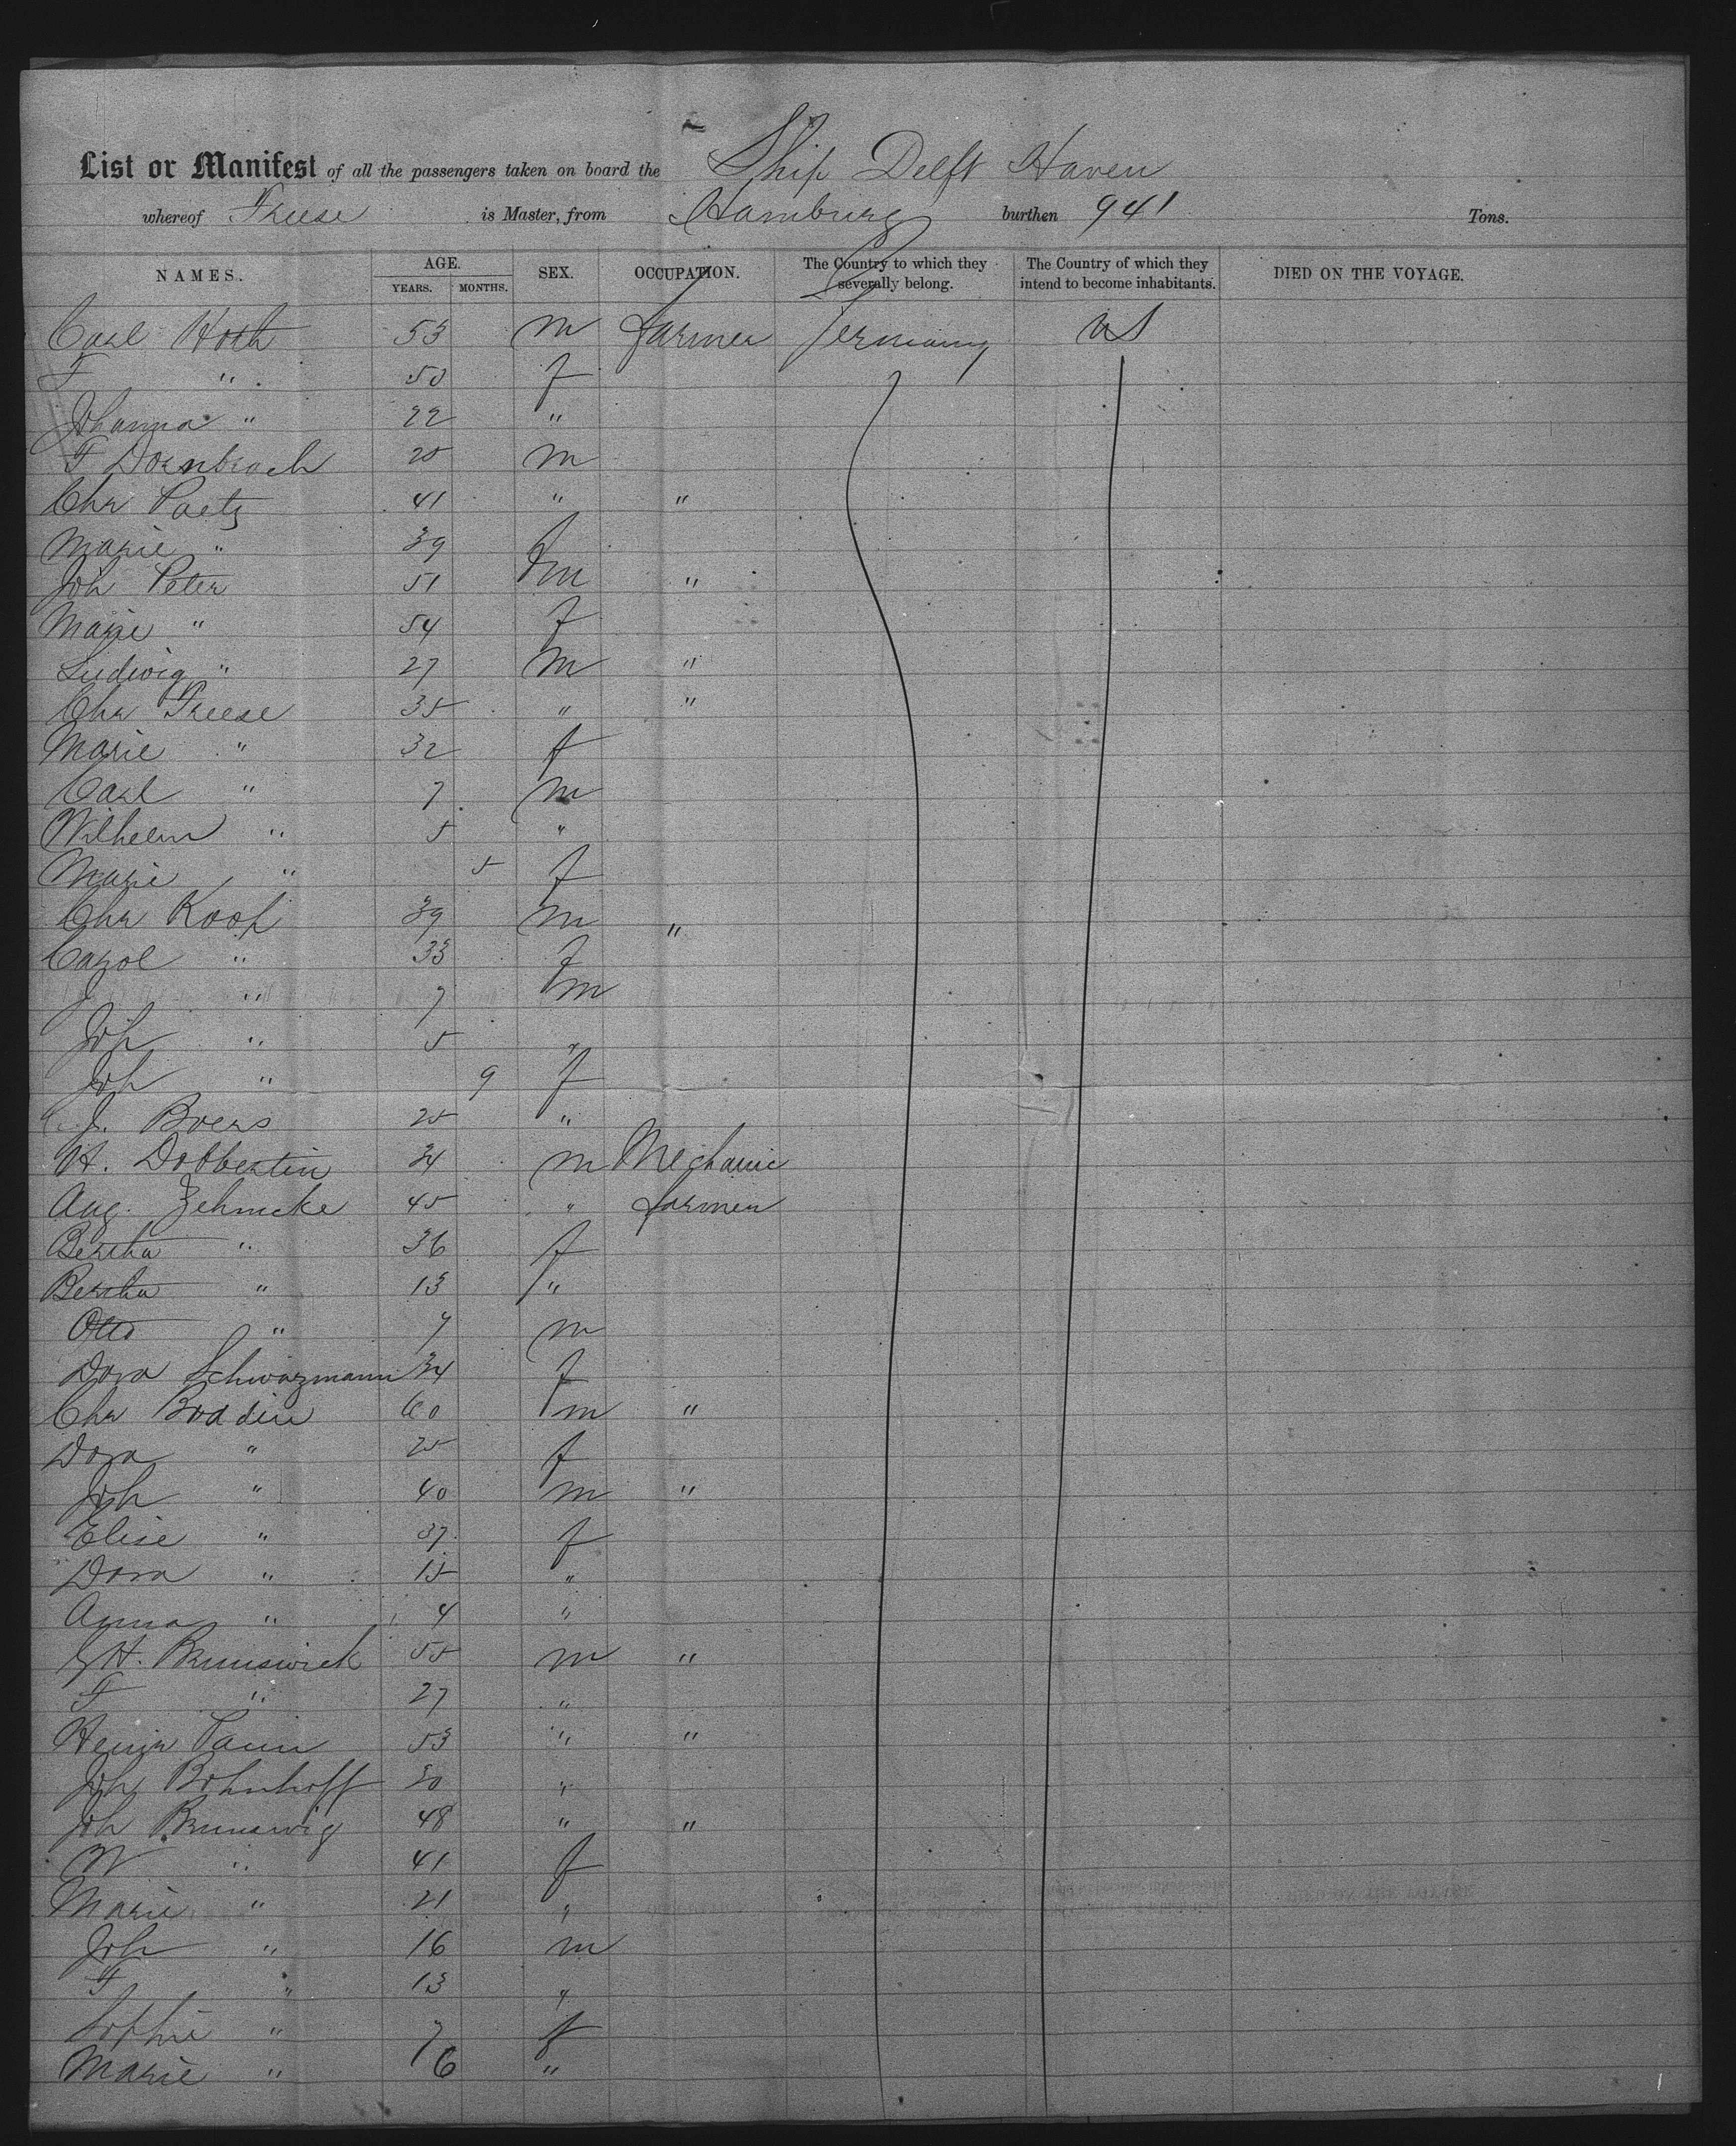 List or Manifest of all the passengers taken on board the Ship Delft Haven
whereof Freese is Master, from Hamburg burthen 941 Tons.
NAMES. AGE. SEX. OCCUPATION. The Country to which they severally belong. The Country of which they intend to become inhabitants. DIED ON THE VOYAGE.
YEARS. MONTHS.
Carl Hoth 53 m farmer Germany US
F " 50 f
Johanna " 22 "
F Dornbrach 20 m
Chr Paetz 41 " "
Marie " 39 f
Joh Peter 51 m "
Marie " 54 f
Ludwig " 27 m "
Chr Freese 35 " "
Marie " 32 f
Carl " 7 m
Wilhelm " 5 "
Marie " 5 f
Chr Koop 39 m "
Carol " 33 f
J " 7 m
Joh " 5 "
Joh " 9 f
J. Boers 25 "
H. Dobbertin 34 m Mechanic
Aug. Zehmcke 45 " farmer
Bertha " 36 f
Bertha " 13 "
Otto " 7 m
Dora Schwazmann 34 f
Chr Boddin 60 m "
Dora " 25 f
Joh " 40 m "
Elise " 37 f
Dora " 15 "
Anna " 4 "
H. Brunswick 55 m "
F " 27 "
Heinr 53 " "
Joh Bohnhoff 30 "
Joh Brunswig 48 " "
W " 41 f
Marie " 21 "
Joh " 16 m
F " 13 "
Sophie " 7 f
Marie " 6 "